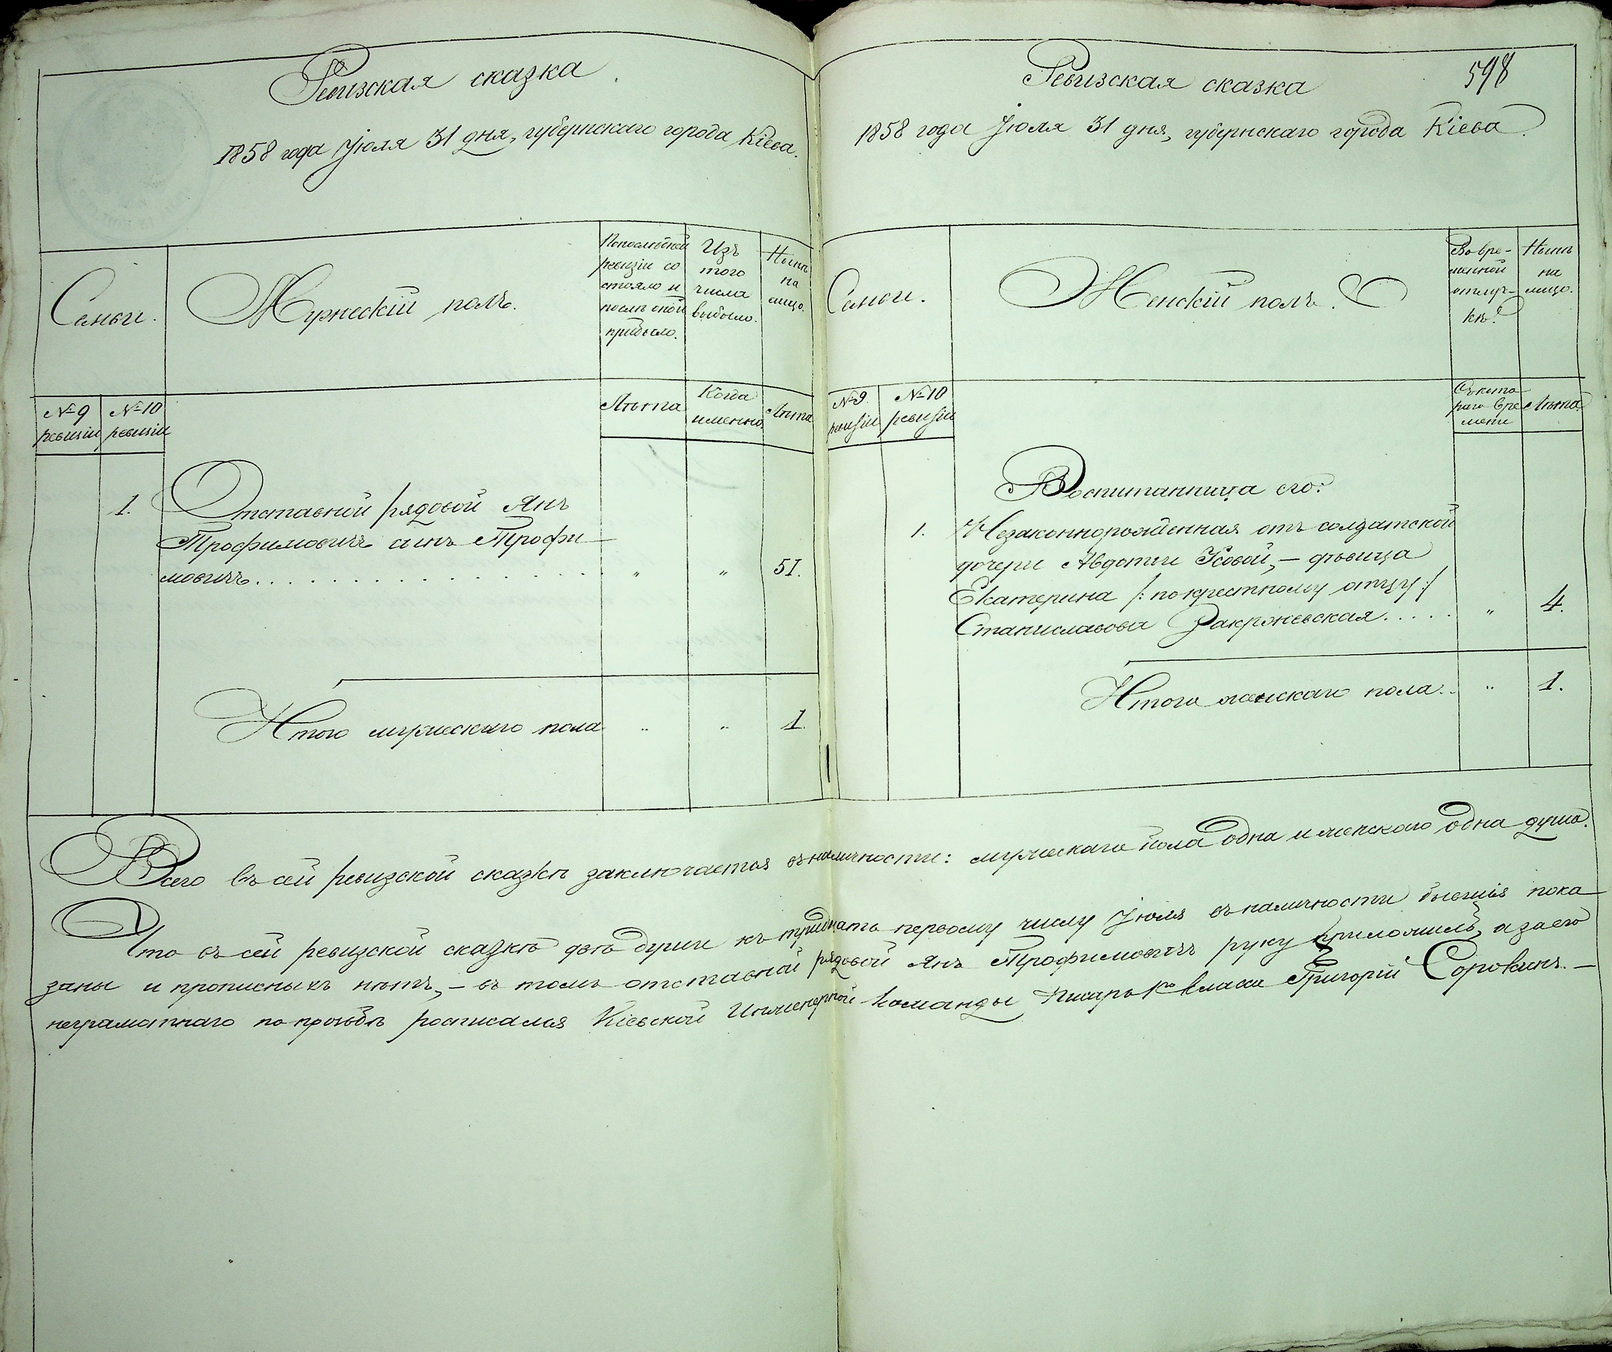 Ревизская сказка
1858 года Іюля 31 дня, губернскаго города Кіева.
Семьи.
Мужескій полъ.
По последней
ревизіи со
стояло и
после оной
прибыло.
Изъ
того
числа
выбыло.
Ныне
на
лицо.
№ 9
ревизіи
№ 10
ревизіи
Лета
Когда
именно.
Лета
1.
Отставной рядовой Янъ
Трофимовичъ сынъ Трофи-
мовичъ
„ „ 51.
Итого мужескаго пола
„ „ 1.
598
Ревизская сказка
1858 года Іюля 31 дня, губернскаго города Кіева.
Семьи.
Женскій полъ.
Во вре-
менной
отлуч-
кѣ.
Ныне
на
лицо.
№ 9
ревизіи
№ 10
ревизіи
Съ кото
раго вре
мени
Лета.
Воспитанница его:
1.
Незаконнорожденная отъ солдатской
дочери Авдотьи Усовой, – девица
Екатерина /: по крестному отцу :/
Станиславова Закржевская.....
„ 4.
Итого женскаго пола..
„ 1.
Всего въ сей ревизской сказкѣ заключается въ наличности: мужескаго пола одна и женскаго одна душа.
Что въ сей ревизской сказкѣ двѣ души къ тридцать первому числу Іюля въ наличности бывшія пока-
заны и прописныхъ нѣтъ, – въ томъ отставной рядовой Янъ Трофимовичъ руку приложилъ, а за его
неграмотнаго по прозьбѣ росписался Кіевской Инженерной команды Писарь класса Григорій